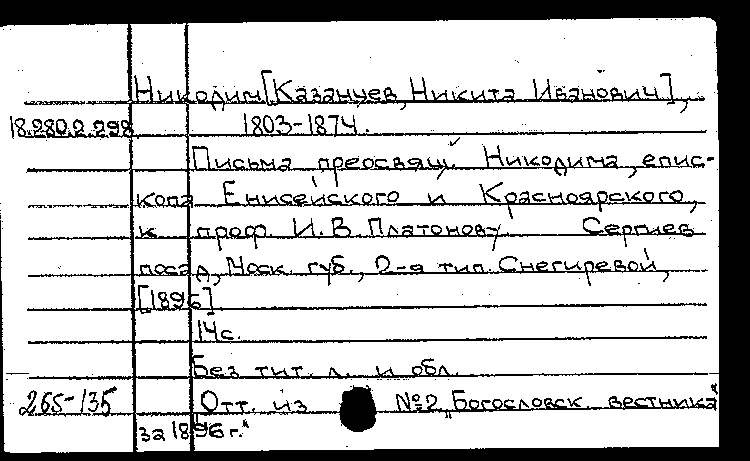 Никодим [Казанцев, Никита Иванович],
18.280.2.298 1803-1874.
Письма преосвящ. Никодима, епис-
копа Енисейского и Красноярского,
к проф. И.В. Платонову. Сергиев
посад, Моск. губ., 2-я тип. Снегиревой,
[1896]
14 с.
Без тит. л. и обл.
265-135 Отт. из № 2 „Богословск. вестника"
за 1896 г."